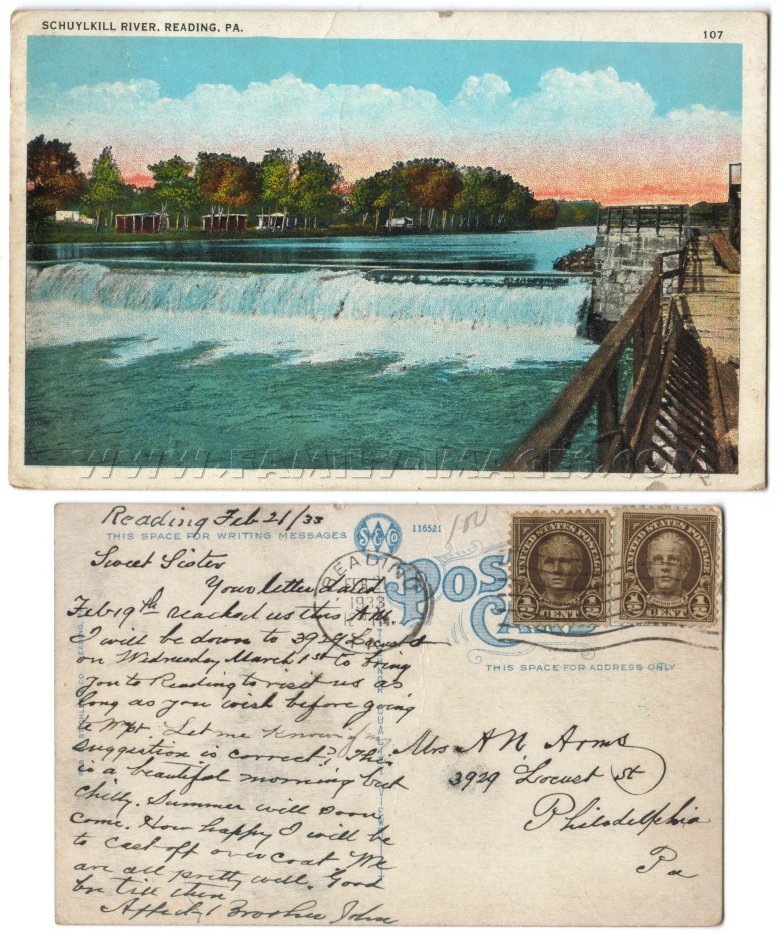 SCHUYLKILL RIVER, READING, PA.
107
WWW.FAMILY-IMAGES.COM
Reading Feb 21/33
THIS SPACE FOR WRITING MESSAGES
116521
100
Sweet Sister
Your letter dated
Feb 19th reached us this AM.
I will be down to 3929 Locust
on Wednesday March 1st to bring
you to Reading to visit us as
long as you wish before going
to
Let me know if my
suggestion is correct? This
is a beautiful morning but
chilly. Summer will soon
come. How happy I will be
to cast off overcoat We
are all pretty well. Good
bye till then
Affect Brother John
READING
FEB
1933
PA
POST CARD
UNITED STATES POSTAGE
1/2 CENT 1/2
UNITED STATES POSTAGE
1/2 CENT 1/2
THIS SPACE FOR ADDRESS ONLY
Mrs A N Arms
3929 Locust St
Philadelphia
Pa